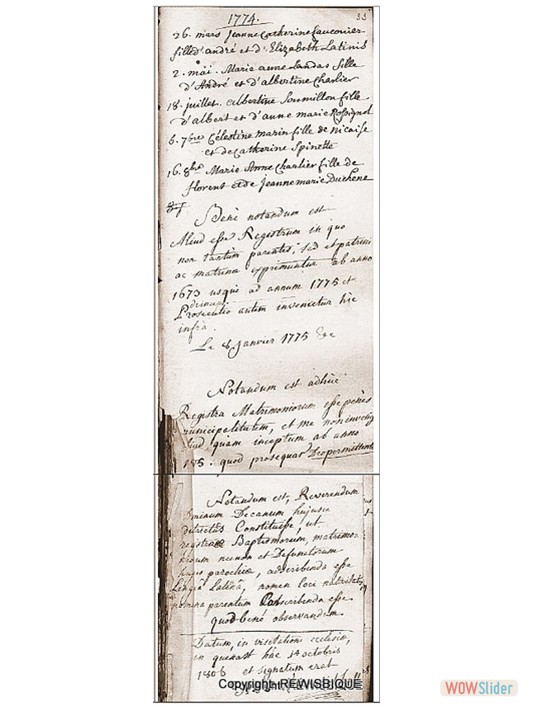 1774. 33
26. mars Jeanne Catherine fauconier
fille d'andré et d'Elizabeth Latinis
2. mai. Marie anne Landas fille
d'André et d'albertine Charlier
18. juillet. albertine Soumillon fille
d'albert et d'anne marie Rossignol
6. 7bre Célestine marin fille de nicaise
et de Catherine Spinette
16. 8bre Marie Anne Charlier fille de
florent et de Jeanne marie Duchene
Benè notandum est
Aliud esse Registrum in quo
non tantum parentes, sed et patrini
ac matrina exprimuntur ab anno
1673 usque ad annum 1775 et
deinceps
Prosecutio autem invenietur hic
infrà.
Le 8 Janvier 1775 &c
Notandum est adhuc
Registra Matrimoniorum esse penès
municipalitatem, et me non invenisse
aliud quam inceptum ab anno
quod prosequar Deo permittente
Notandum est, Reverendum
Dominum Decanum hujusce
districtûs Constituisse, ut
registra Baptismorum, matrimo-
niorum necnon et Defunctorum
hujus parochiæ, adscribenda esse
Linguâ Latinâ, nomen loci nativitatis
nomina parentum adscribenda esse
quod benè observandum.
Datum, in visitatione ecclesiæ,
in quevast hâc 14 octobris
1806 et signatum erat
Copyright REWISBIQUE
WOWSlider